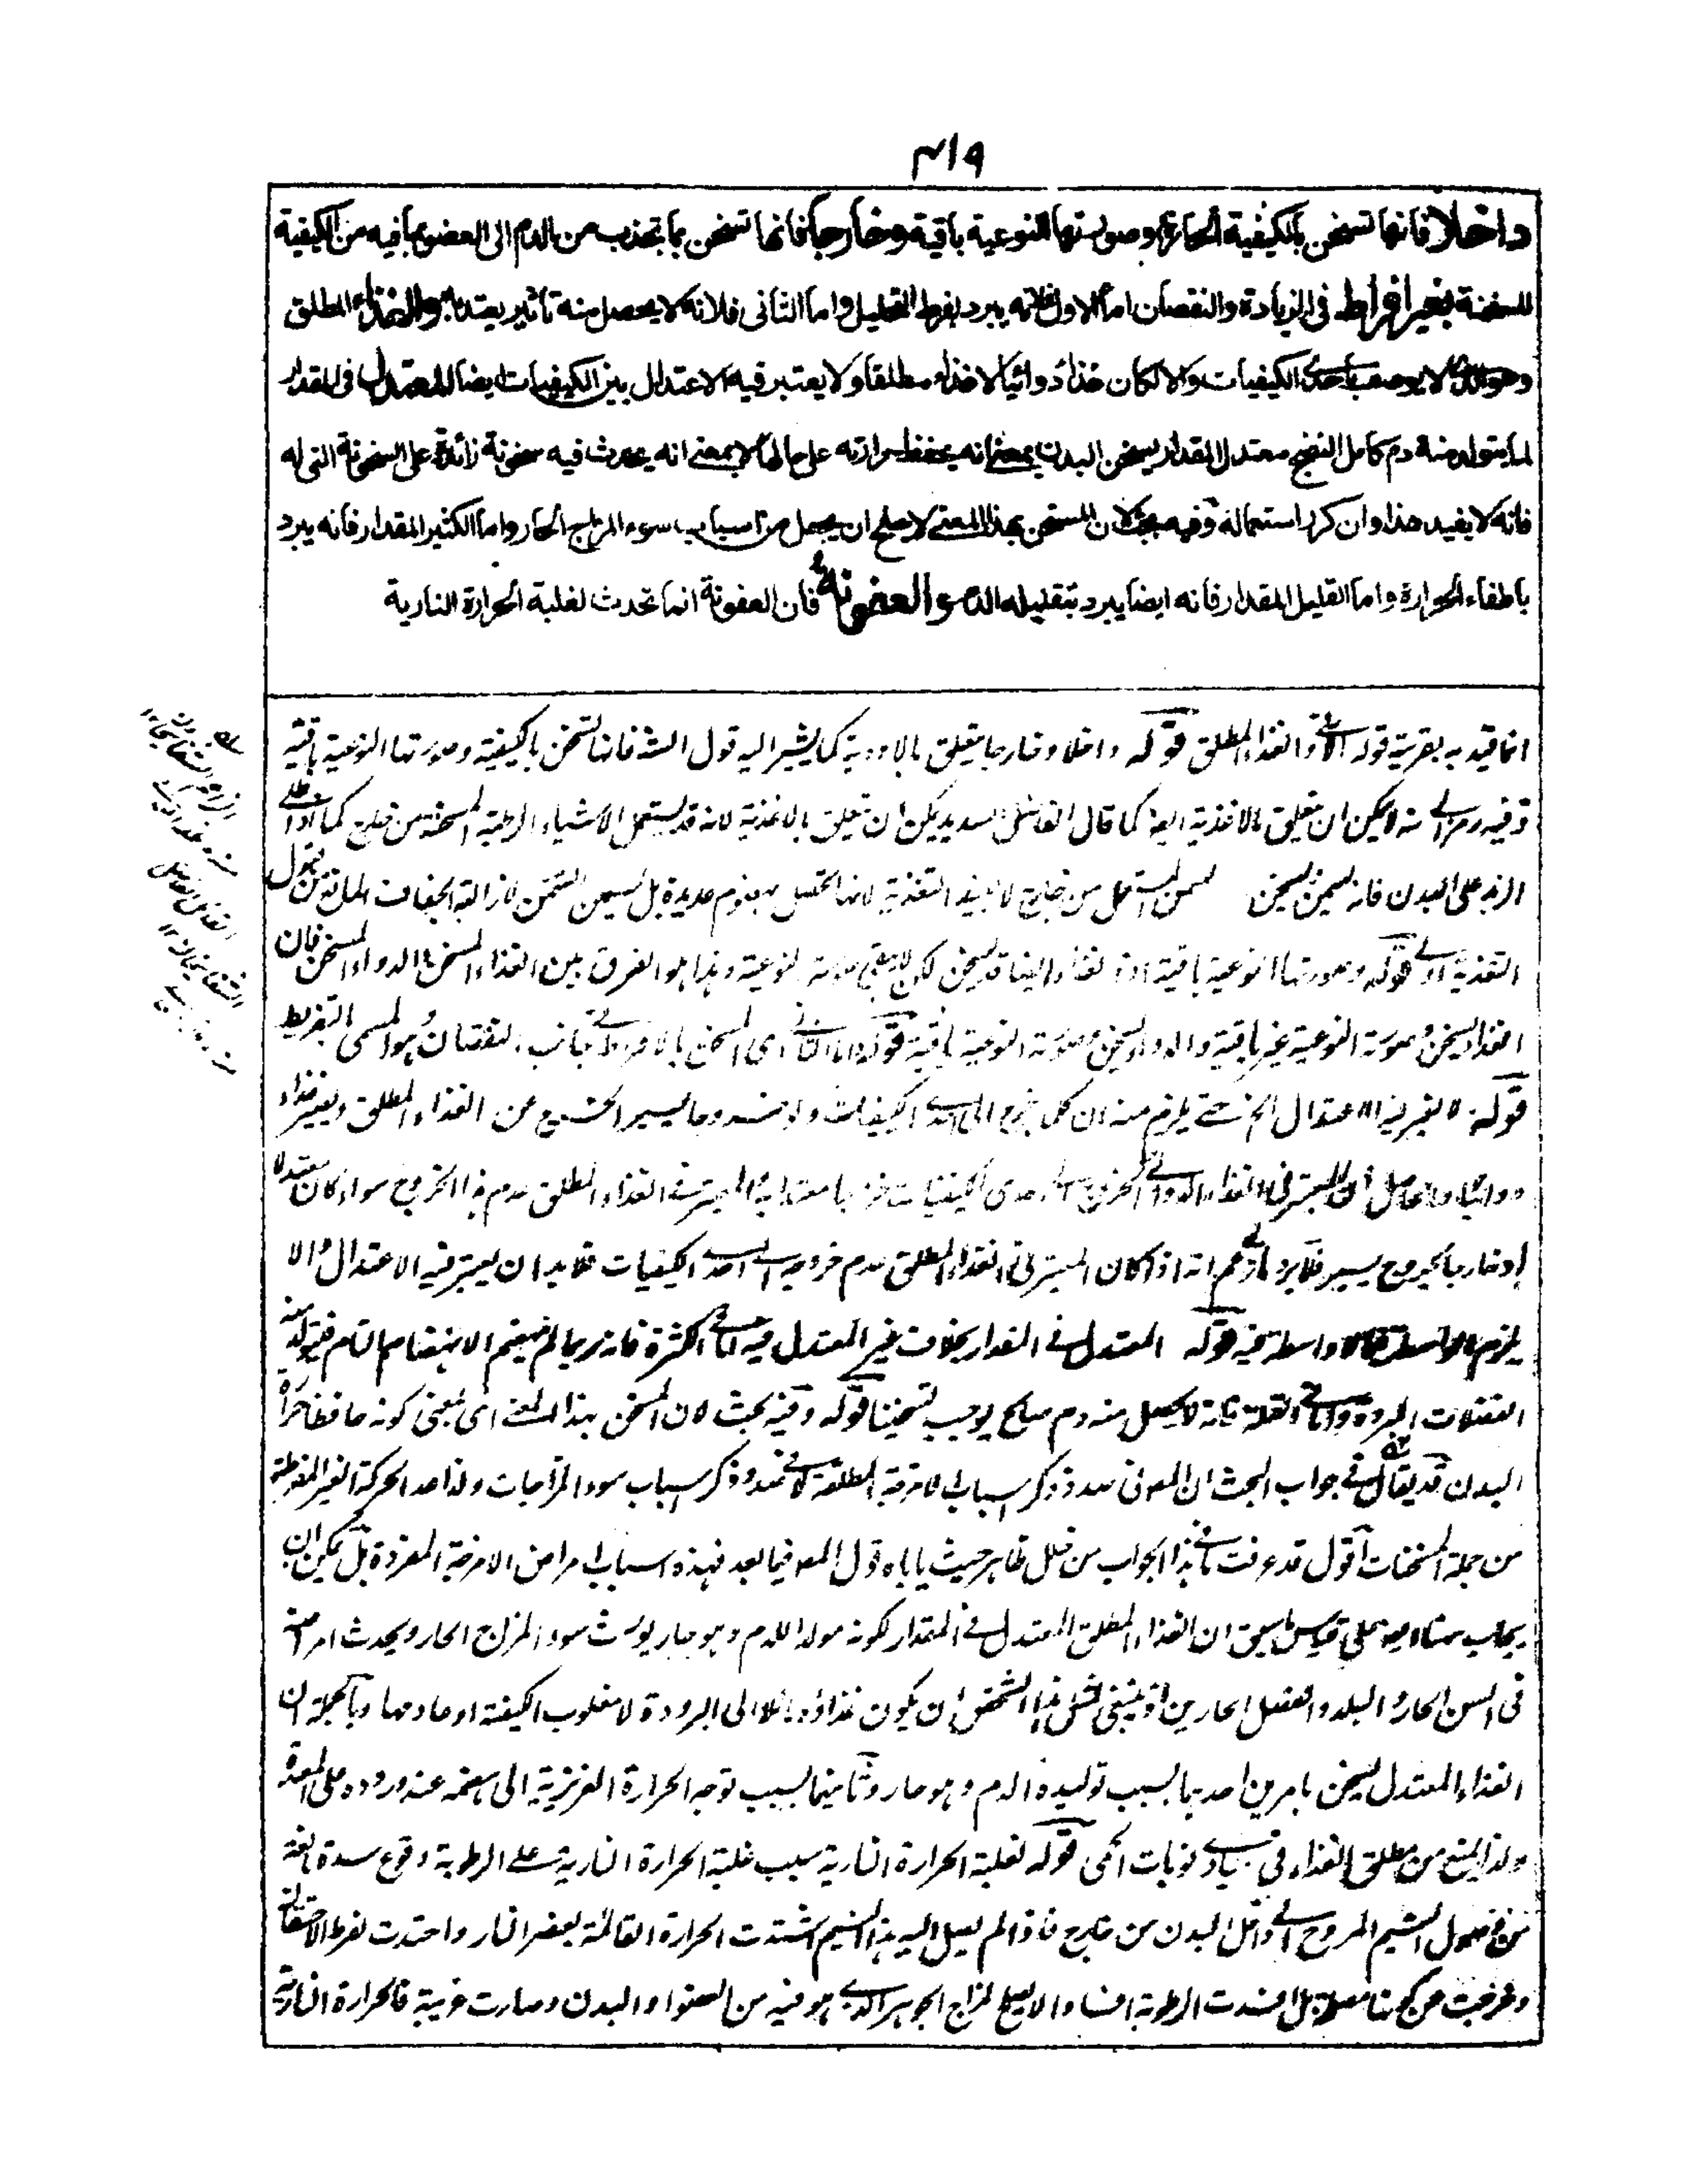 ٤١٩
داخلا فانها تسخن بالكيفية الحارة وصورتها النوعية باقية وخارجا فانها تسخن بما تجذب من الدم الى العضو بما فيه من الكيفية
المسخنة بغير افراط فى الزيادة والنقصان اما الاول فلانه يبرد لفرط التحليل واما الثانى فلانه لا يحصل منه تاثير يعتد به والغذاء المطلق
وهو الذى لا يوصف باحدى الكيفيات والا لكان غذاء دوائيا لا غذاء مطلقا ولا يعتبر فيه الاعتدال بين الكيفيات ايضا المعتدل فى المقدار
لما يتولد منه دم كامل النضج معتدل المقدار يسخن البدن بمعنى انه يحفظ حرارته على حالها لا بمعنى انه يحدث فيه سخونة زائدة على السخونة التى له
فانه لا يفيد هذا وان كرر استعماله وفيه بحث لان المسخن بهذا المعنى لا يصلح ان يجعل من اسباب سوء المزاج الحار واما الكثير المقدار فانه يبرد
باطفاء الحرارة واما القليل المقدار فانه ايضا يبرد بتقليله الدم والعفونة فان العفونة انما تحدث لغلبة الحرارة النارية
انما قيد به بقرينة قوله والغذاء المطلق قوله داخلا وخارجا متعلق بالادوية كما يشير اليه قول الشه فانها تسخن بالكيفية وصورتها النوعية باقية
وفيه رمز الى انه لا يمكن ان يتعلق بالاغذية ايضا كما قال الفاضل السديد يمكن ان يتعلق بالاغذية لانه قد يستعمل الاشياء الرطبة المسخنة من خارج كما اذا طلى
الزبد على البدن فانه يسمن ويسخن من خارج لا يفيد التغذية لانها تحصل بهضوم عديدة بل يسمن
التغذية قوله وصورتها النوعية باقية اذ الغذاء ايضا قد يسخن لكن لا يبقى صورته النوعية وهذا هو الفرق بين الغذاء المسخن والدواء المسخن فان
الغذاء يسخن وصورته النوعية غير باقية والدواء يسخن وصورته النوعية باقية قوله واما الثانى اى المسخن بالافراط فى جانب النقصان وهو المسمى بالتفريط
قوله لا يعتبر فيه الاعتدال الخ حتى يلزم منه ان كل خرج الى احدى الكيفيات ولو خروجا يسيرا خرج عن الغذاء المطلق ويصير غذاء
دوائيا والحاصل ان المعتبر فى الغذاء الدوائى الخروج الى احدى الكيفيات خروجا معتدا به والمعتبر فى الغذاء المطلق عدم هذا الخروج سواء كان معتدلا
او خارجا بخروج يسير فلا يرد ما توهم انه اذا كان المعتبر فى الغذاء المطلق عدم خروجه الى احدى الكيفيات فلا بد ان يعتبر فيه الاعتدال والا
يلزم فيه قوله المعتدل فى المقدار بخلاف غير المعتدل فيه اما فى الكثرة فانه ربما لم ينهضم الانهضام التام فيتولد منه
الفضلات المبردة واما فى القلة فانه لا يحصل منه دم صالح يوجب تسخينا قوله وفيه بحث لان المسخن بهذا المعنى اى بمعنى كونه حافظا حرارة
البدن قد يقال فى جواب البحث ان المص فى صدد ذكر اسباب الامزجة المطلقة لا فى صدد ذكر اسباب سوء المزاجات ولذا عد الحركة الغير المفرطة
من جملة المسخنات اقول قد عرفت ما فى هذا الجواب من خلل ظاهر حيث ياباه قول المص فيما بعد فهذه اسباب امراض الامزجة المفردة بل يمكن ان
يجاب على قياس ما سبق ان الغذاء المطلق المعتدل فى المقدار لكونه مولدا للدم وهو حار يورث سوء المزاج الحار ويحدث امراضه
فى السن الحار والبلد والفصل الحارين اذ ينبغى لمثل هذا الشخص ان يكون غذاؤه مائلا الى البرودة لا مغلوب الكيفية او عادمها وبالجملة ان
الغذاء المعتدل يسخن بامرين احدهما بسبب توليده الدم وهو حار وثانيهما بسبب توجه الحرارة الغريزية الى هضمه عند وروده على المعدة
ولذا يمنع من مطلق الغذاء فى نوبات الحمى قوله لغلبة الحرارة النارية سبب غلبة الحرارة النارية على الرطوبة وقوع سدة مانعة
من وصول النسيم المروح الى داخل البدن من خارج فاذا لم يصل اليه هذا النسيم اشتدت الحرارة القائمة بعنصر النار واحتدت لفرط الاحتقان
وخرجت عن كونها مصلحة بل افسدت الرطوبة افسادا لا يصلح لمزاج الجوهر الذى هو فيه من العضو او البدن وصارت غريبة فالحرارة النارية